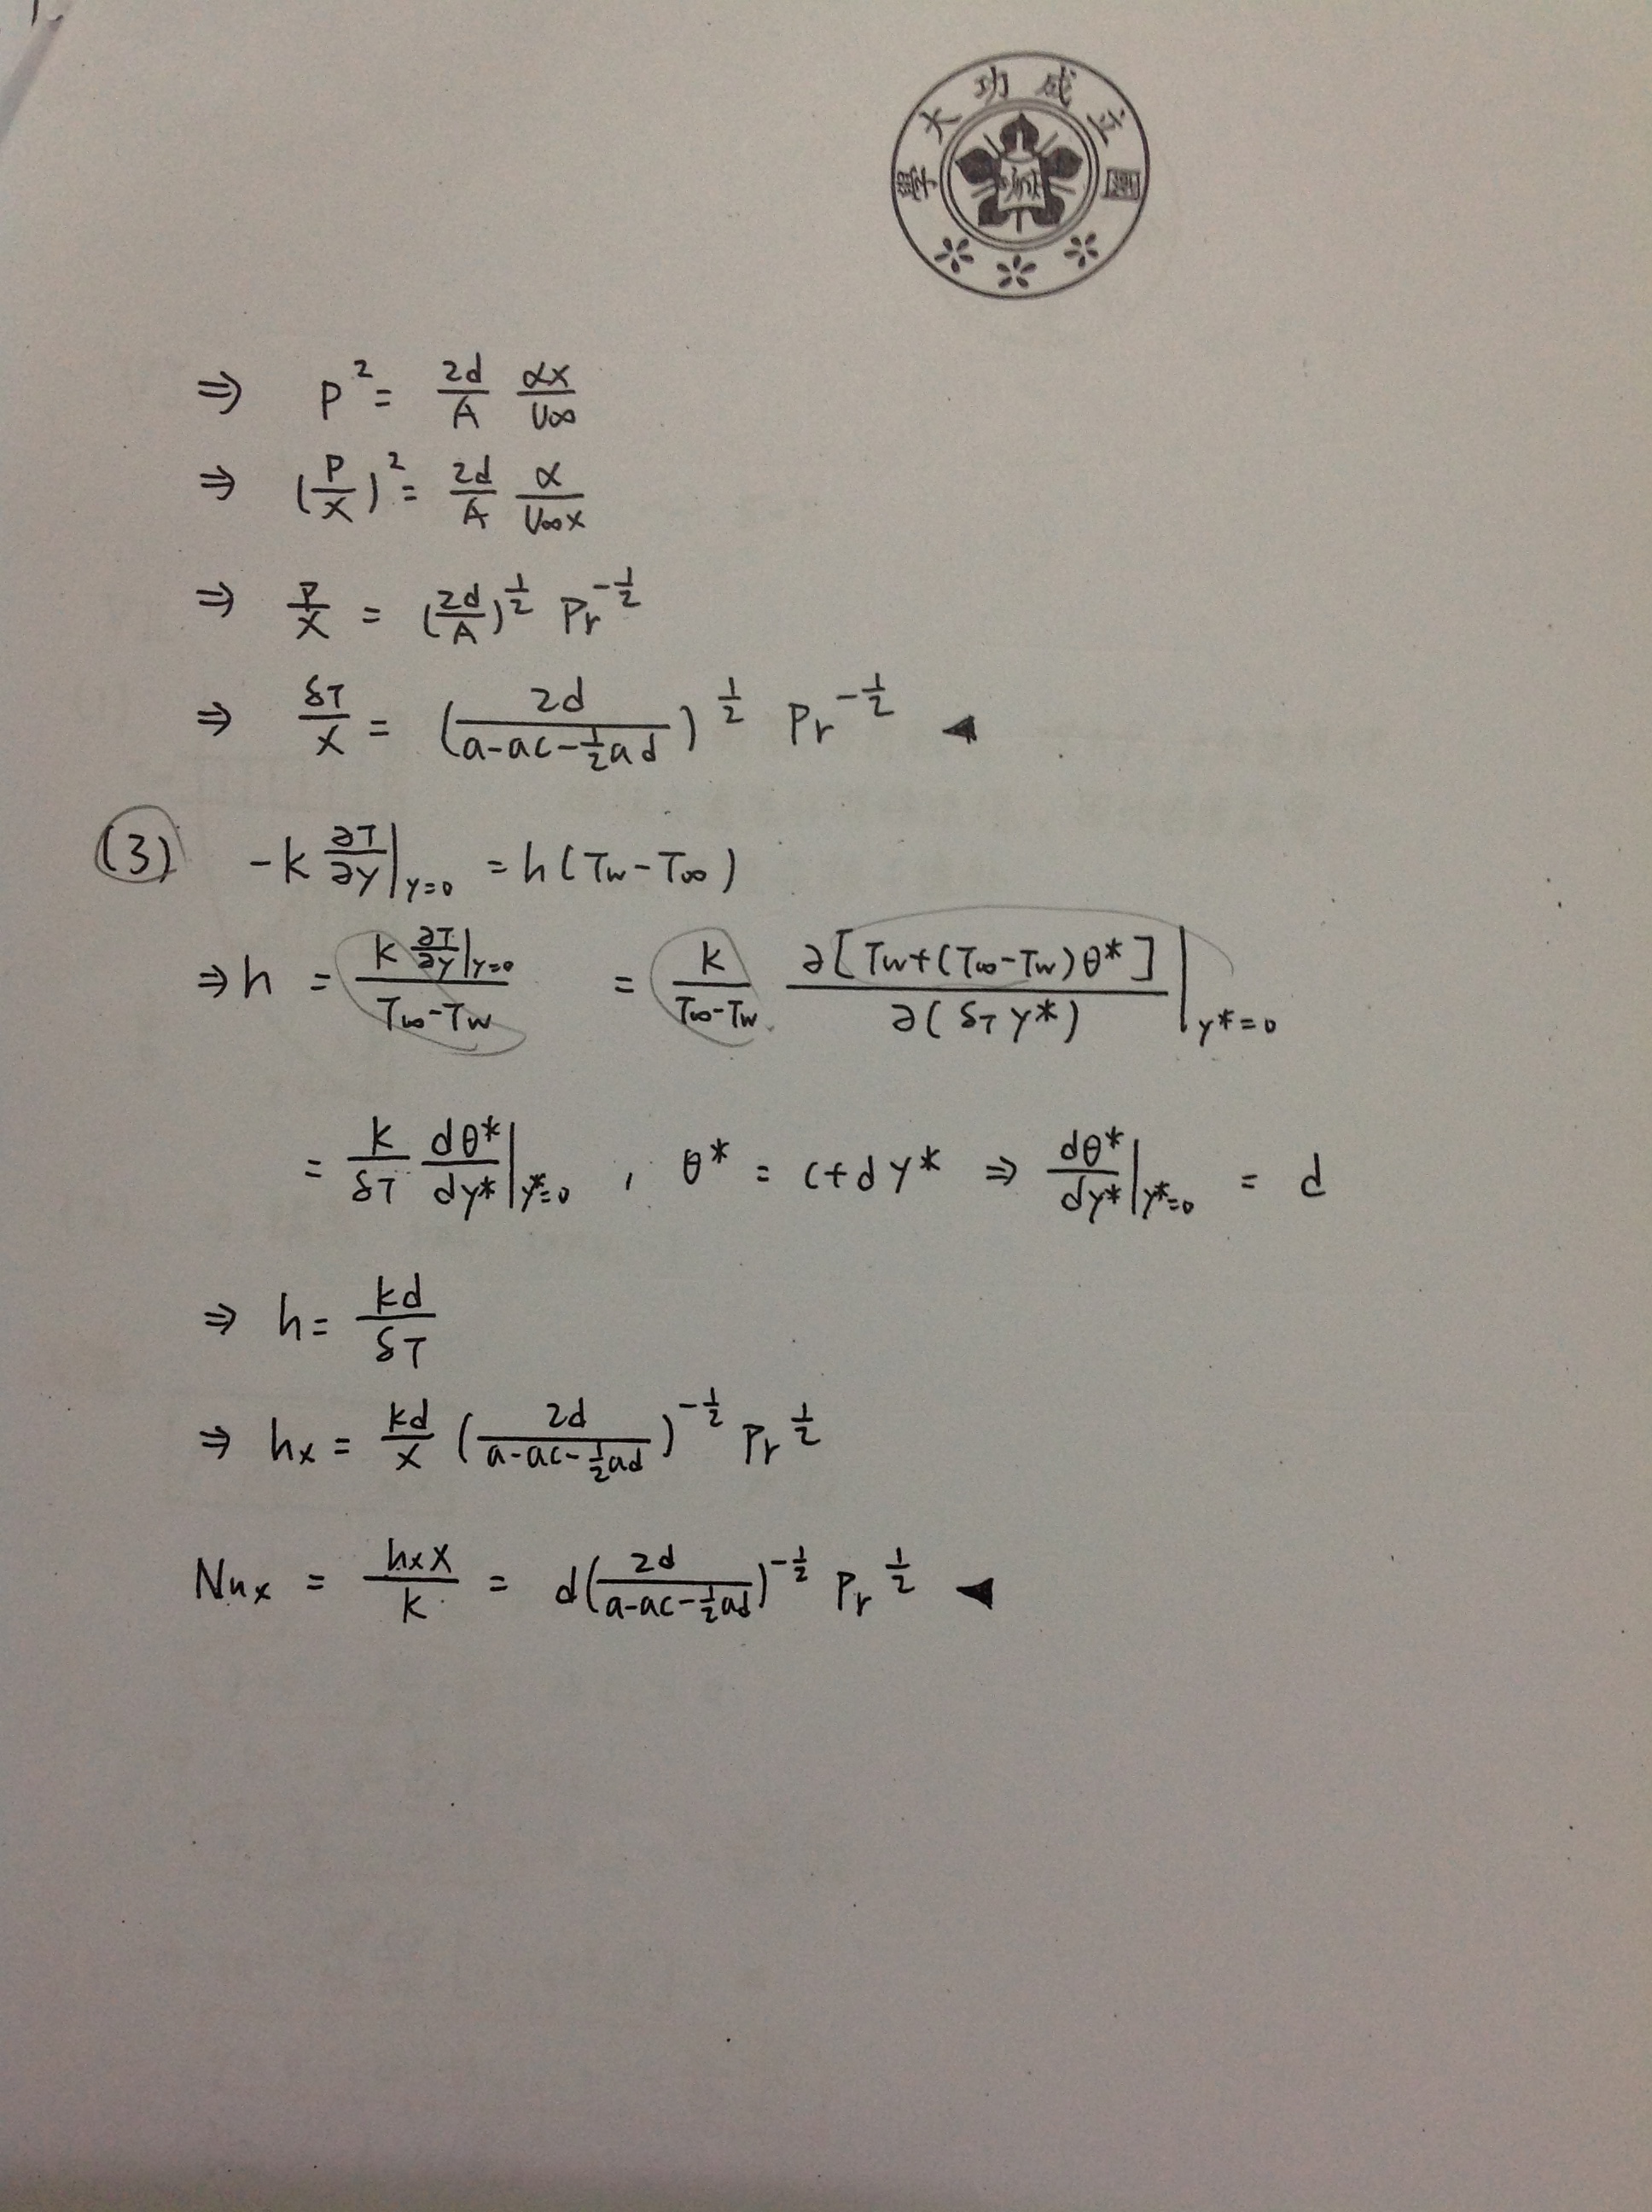 國立成功大學
⇒ P² = 2d/A αx/U∞
⇒ (P/x)² = 2d/A α/U∞x
⇒ P/x = (2d/A)^½ Pr^-½
⇒ δT/x = (2d/(a-ac-½ad))^½ Pr^-½
(3) -k ∂T/∂y|y=0 = h(Tw-T∞)
⇒ h = k ∂T/∂y|y=0 / (T∞-Tw) = k/(T∞-Tw) ∂[Tw+(T∞-Tw)θ*]/∂(δT y*)|y*=0
= k/δT dθ*/dy*|y*=0 , θ* = c+dy* ⇒ dθ*/dy*|y*=0 = d
⇒ h = kd/δT
⇒ hx = kd/x (2d/(a-ac-½ad))^-½ Pr^½
Nux = hxx/k = d(2d/(a-ac-½ad))^-½ Pr^½